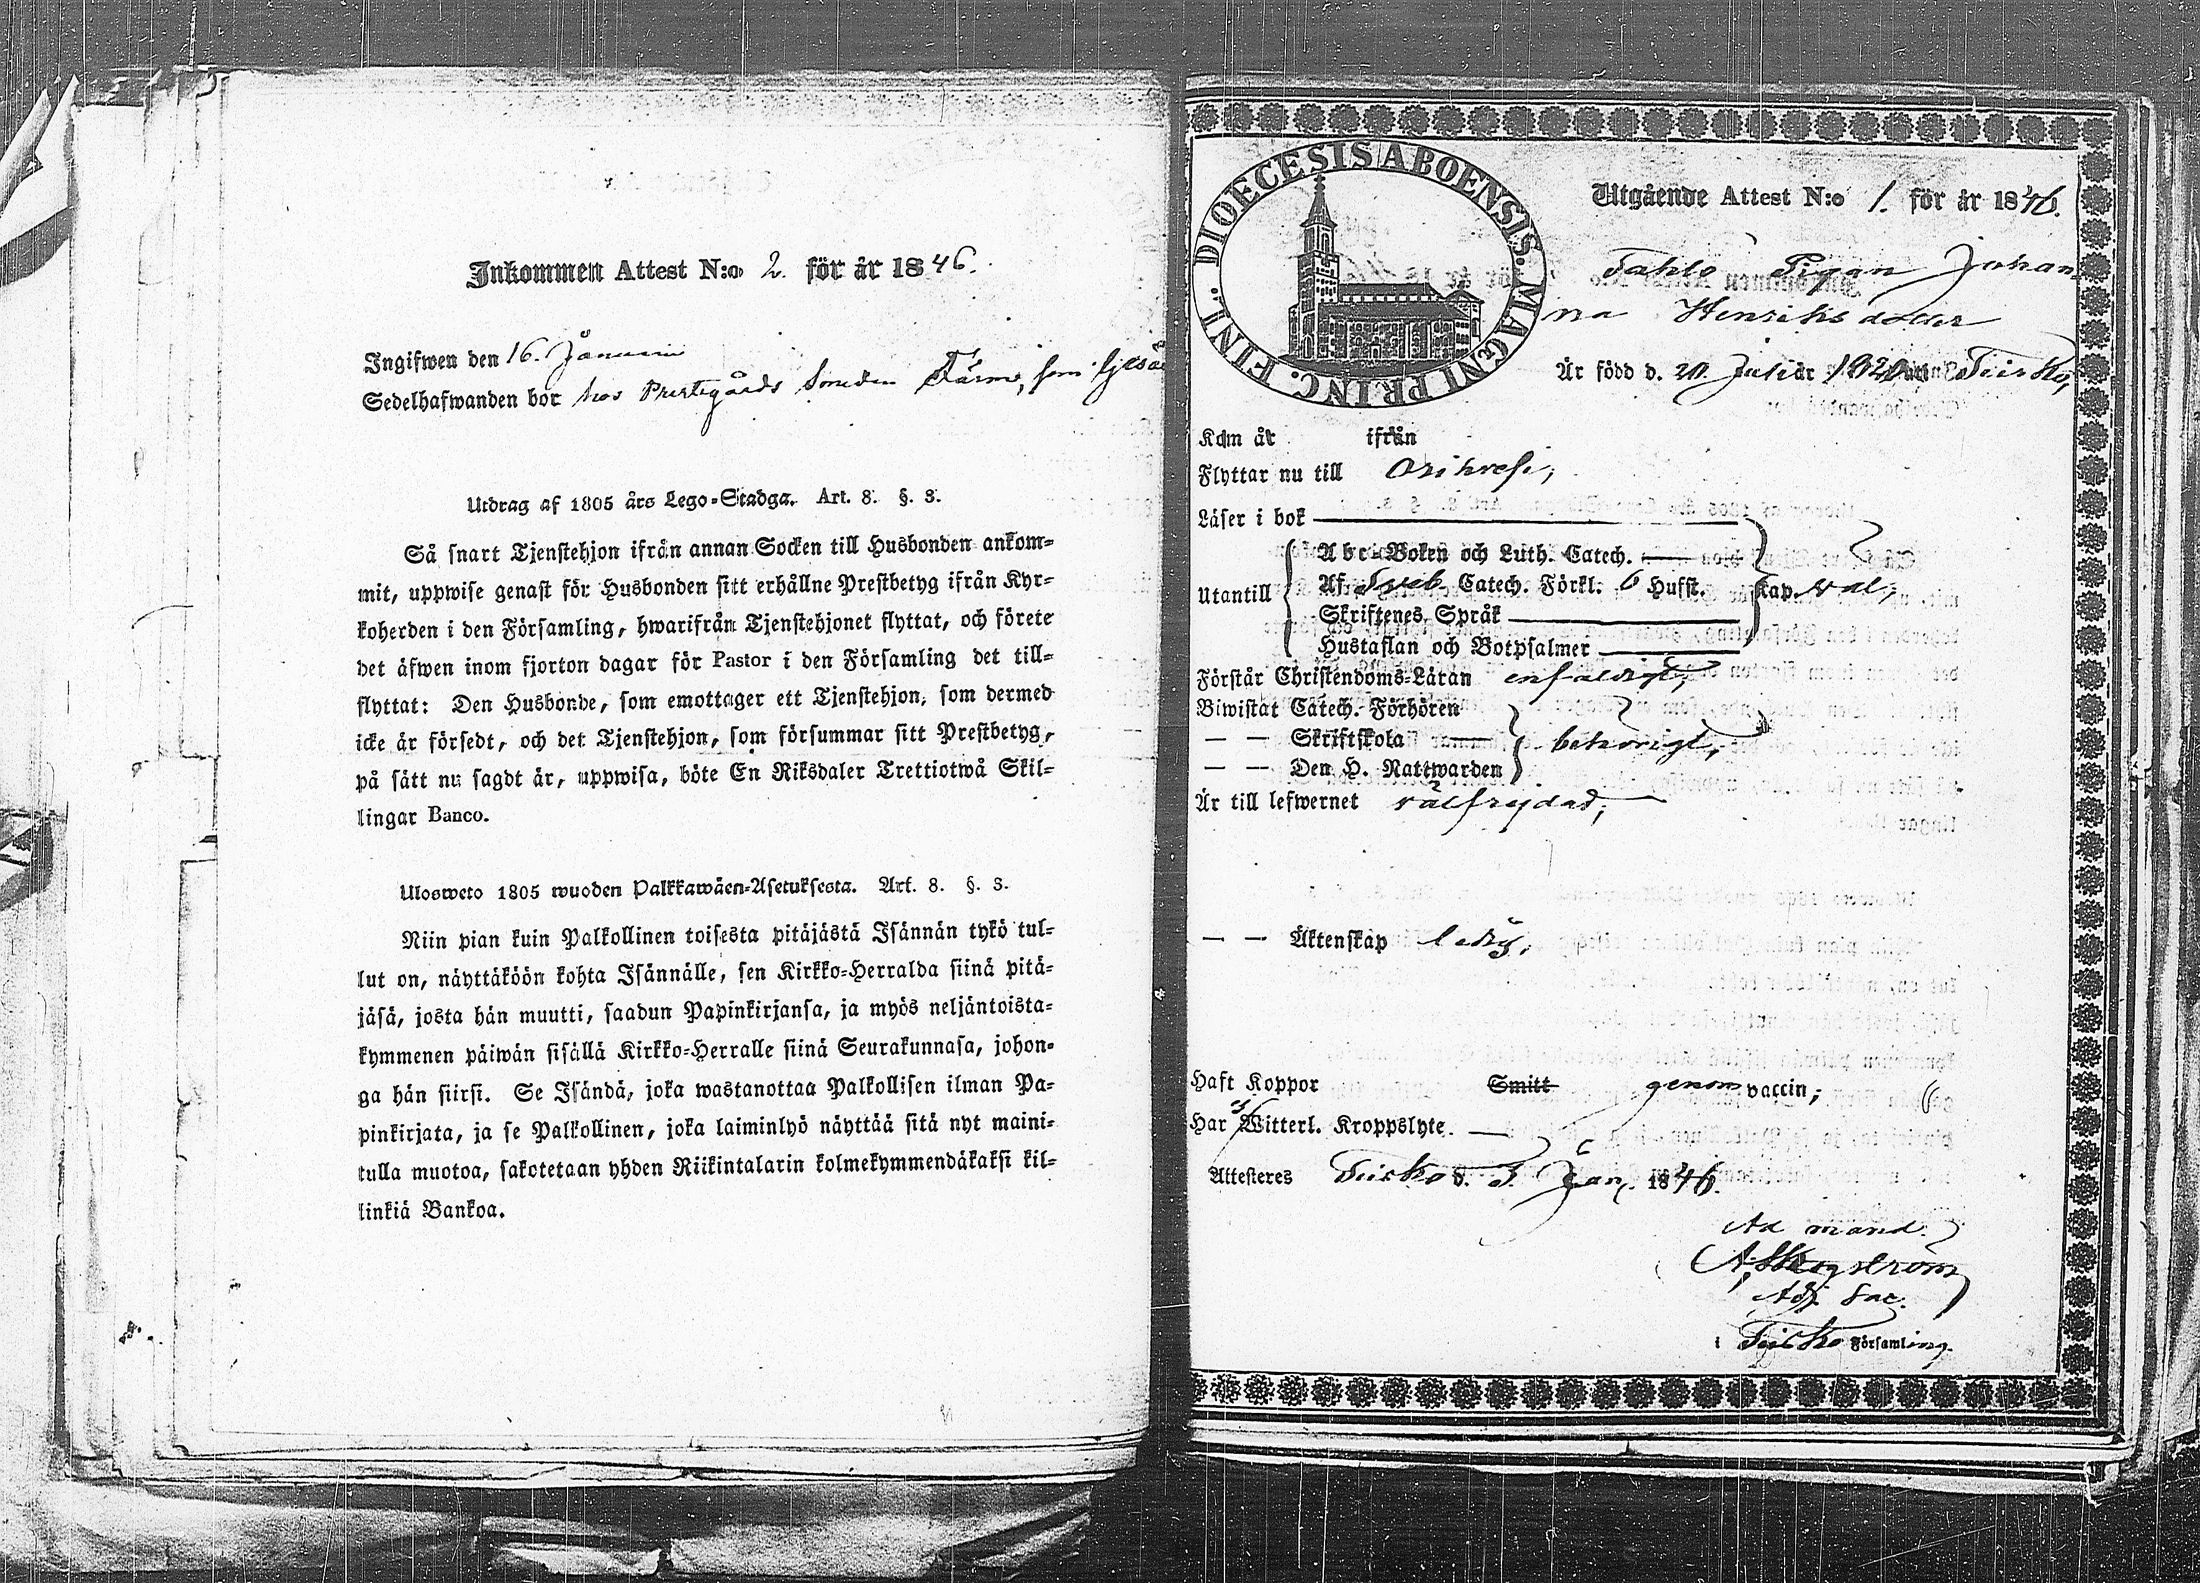 Inkommen Attest N:o 2. för år 1846.
Ingifwen den 16. Januari
Sedelhafwanden bor hos Prestegårds Smeden Färm, som
Utdrag af 1805 års Lego-Stadga. Art. 8. §. 3.
Så snart Tjenstehjon ifrån annan Socken till Husbonden ankom-
mit, uppwise genast för Husbonden sitt erhållne Prestbetyg ifrån Kyr-
koherden i den Församling, hwarifrån Tjenstehjonet flyttat, och förete
det äfwen inom fjorton dagar för Pastor i den Församling det till-
flyttat: Den Husbonde, som emottager ett Tjenstehjon, som dermed
icke är försedt, och det Tjenstehjon, som försummar sitt Prestbetyg,
på sätt nu sagdt är, uppwisa, böte En Riksdaler Trettiotwå Skil-
lingar Banco.
Ulosweto 1805 wuoden Palkkawäen-Asetuksesta. Art. 8. §. 3.
Niin pian kuin Palkollinen toisesta pitäjästä Isännän tykö tul-
lut on, näyttäköön kohta Isännälle, sen Kirkko-Herralda siinä pitä-
jäsä, josta hän muutti, saadun Papinkirjansa, ja myös neljäntoista-
kymmenen päiwän sisällä Kirkko-Herralle siinä Seurakunnasa, johon-
ga hän siirsi. Se Isändä, joka wastanottaa Palkollisen ilman Pa-
pinkirjata, ja se Palkollinen, joka laiminlyö näyttää sitä nyt maini-
tulla muotoa, sakotetaan yhden Riikintalarin kolmekymmendäkaksi kil-
linkiä Bankoa.
DIOECESIS ABOENSIS. MAGNI PRINC. FINL.
Utgående Attest N:o 1. för år 1846.
Pigan Johan
na Henriksdotter
Är född d. 20 Juli år 1820 i Teisko,
Kom år ifrån
Flyttar nu till Orihvesi,
Läser i bok
Utantill
Abc-Boken och Luth. Catech.
Af Sveb. Catech. Förkl. 6 Hufst. Kap. väl,
Skriftenes Språk
Hustaflan och Botpsalmer
Förstår Christendoms-Läran enfaldigt,
Biwistat Catech. Förhören
— — Skriftskola behörigt,
— — Den H. Nattwarden
Är till lefwernet välfrejdad,
— — Äktenskap ledig,
Haft Koppor Smitt genom vaccin;
Har ej Witterl. Kroppslyte.
Attesteres Teisko d. 3. Jan. 1846.
Ad mand.
Adj. Sac.
i Teisko Församling.